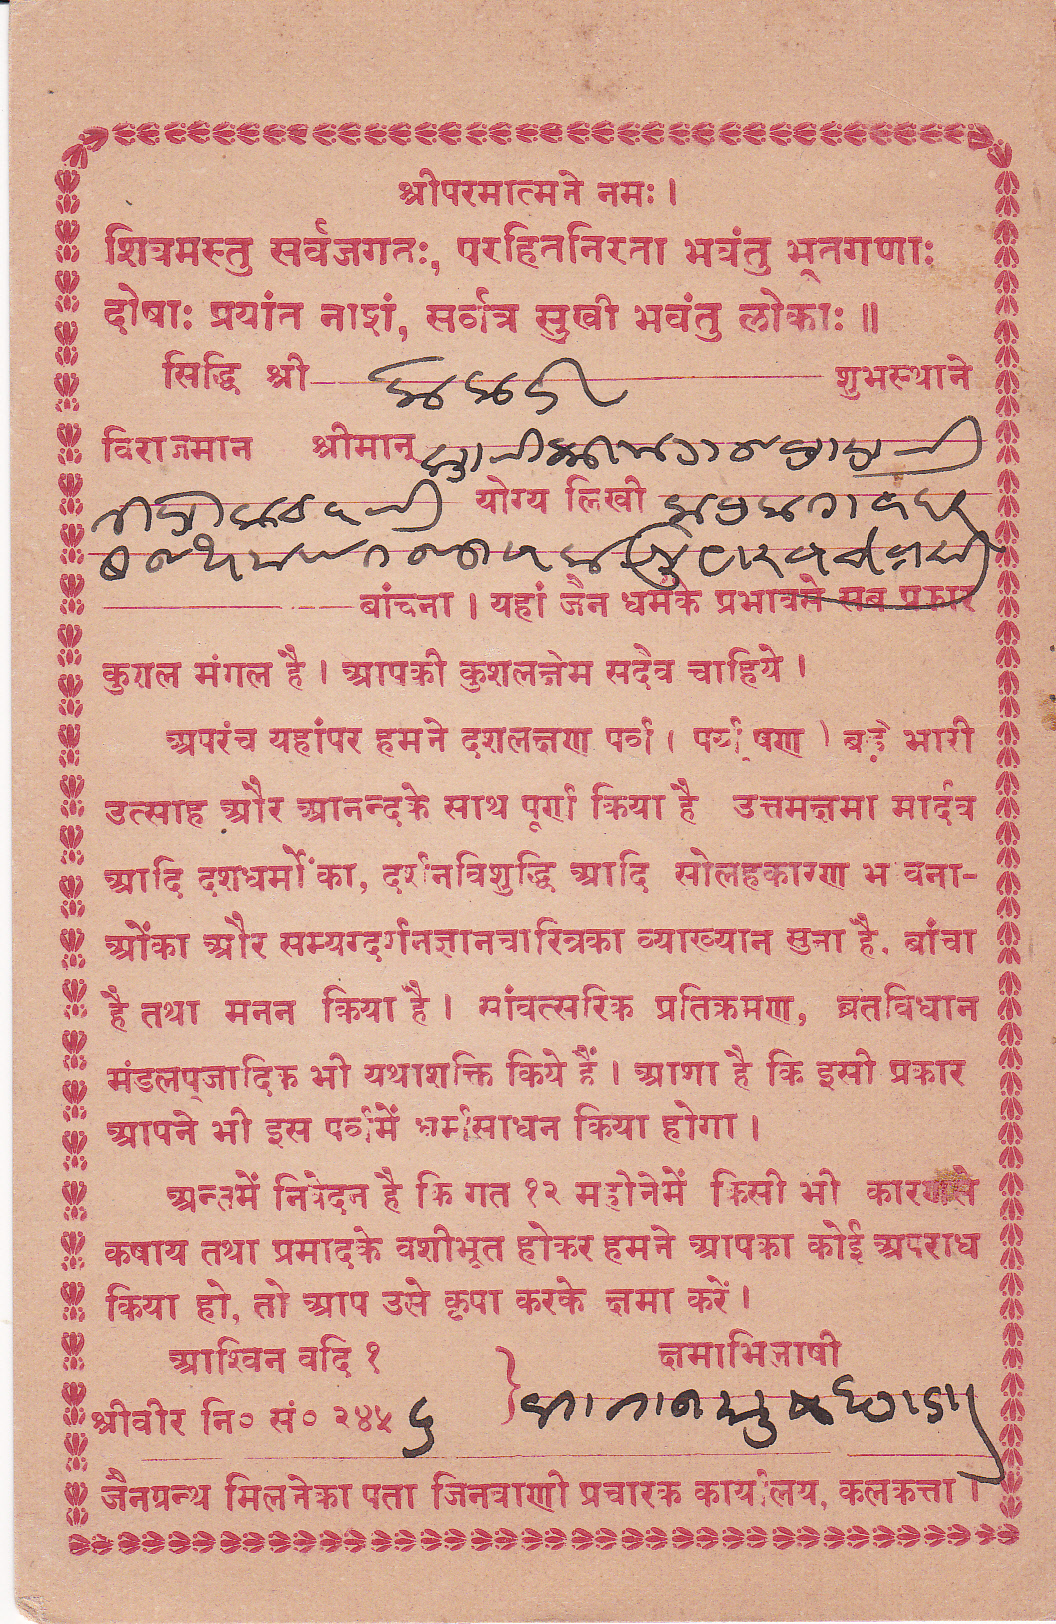 श्रीपरमात्मने नमः ।
शिवमस्तु सर्वजगतः, परहितनिरता भवंतु भूतगणाः
दोषाः प्रयांत नाशं, सर्वात्र सुखी भवंतु लोकाः ॥
सिद्धि श्री शुभस्थाने
विराजमान श्रीमान्
योग्य लिखी
बांचना । यहां जैन धर्मके प्रभावसे सब प्रकार
कुशल मंगल है । आपकी कुशलक्षेम सदैव चाहिये ।
अपरंच यहांपर हमने दशलक्षण पर्व ( पर्यूषण ) बड़े भारी
उत्साह और आनन्दके साथ पूर्ण किया है उत्तमक्षमा मार्दव
आदि दशधर्मोंका, दर्शनविशुद्धि आदि सोलहकारण भावना-
ओंका और सम्यग्दर्शनज्ञानचारित्रका व्याख्यान सुना है, बांचा
है तथा मनन किया है । सांवत्सरिक प्रतिक्रमण, व्रतविधान
मंडलपूजादिक भी यथाशक्ति किये हैं । आशा है कि इसी प्रकार
आपने भी इस पर्वमें धर्मसाधन किया होगा ।
अन्तमें निवेदन है कि गत १२ महीनेमें किसी भी कारणसे
कषाय तथा प्रमादके वशीभूत होकर हमने आपका कोई अपराध
किया हो, तो आप उसे कृपा करके क्षमा करें ।
आश्विन वदि १ क्षमाभिलाषी
श्रीवीर नि० सं० २४५६
जैनग्रन्थ मिलनेका पता जिनवाणी प्रचारक कार्यालय, कलकत्ता ।